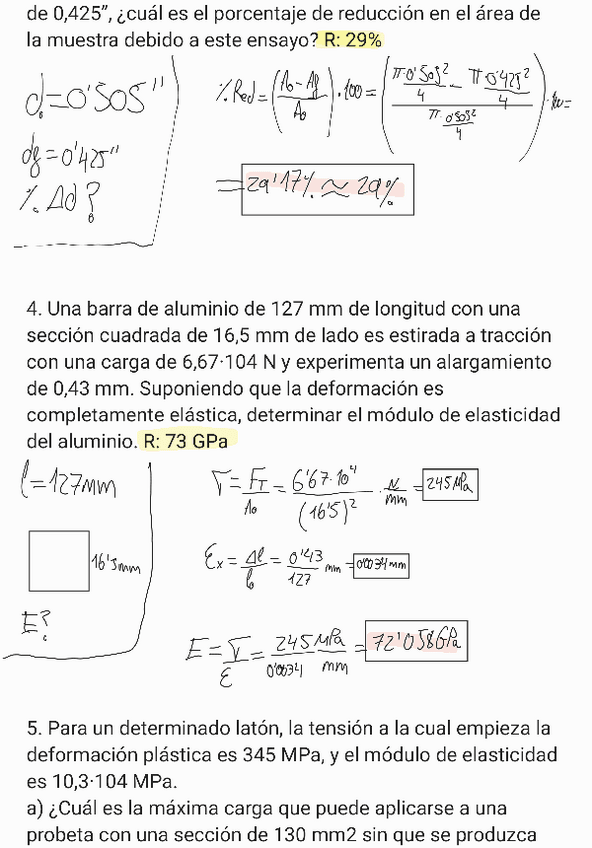 de 0,425”, ¿cuál es el porcentaje de reducción en el área de
la muestra debido a este ensayo? R: 29%
d₀=0'505"
df=0'425"
% Ad?
% Red = (A₀ - Af / A₀) · 100 = (π·0'505² / 4 - π·0'425² / 4 / π·0'505² / 4) · 100 =
= 29'17% ≈ 29%
4. Una barra de aluminio de 127 mm de longitud con una
sección cuadrada de 16,5 mm de lado es estirada a tracción
con una carga de 6,67·104 N y experimenta un alargamiento
de 0,43 mm. Suponiendo que la deformación es
completamente elástica, determinar el módulo de elasticidad
del aluminio. R: 73 GPa
l=127mm
16'5mm
E?
σ = F_T / A₀ = 6'67·10⁴ / (16'5)² · N / mm = 245 MPa
εx = Δl / l₀ = 0'43 / 127 mm = 0'0034 mm
E = σ / ε = 245 MPa / 0'0034 mm = 72'058 GPa
5. Para un determinado latón, la tensión a la cual empieza la
deformación plástica es 345 MPa, y el módulo de elasticidad
es 10,3·104 MPa.
a) ¿Cuál es la máxima carga que puede aplicarse a una
probeta con una sección de 130 mm2 sin que se produzca